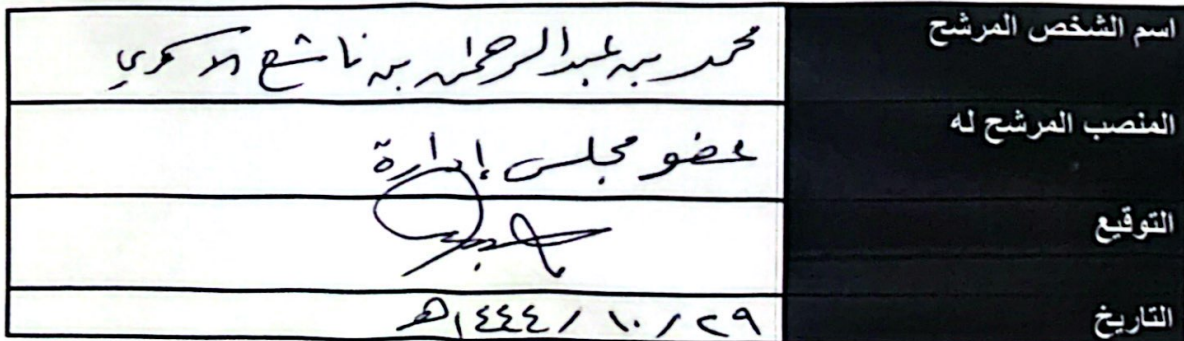 اسم الشخص المرشح محمد بن عبدالرحمن بن ناشع
المنصب المرشح له عضو مجلس إدارة
التوقيع
التاريخ ٢٩/١٠/١٤٤٤هـ